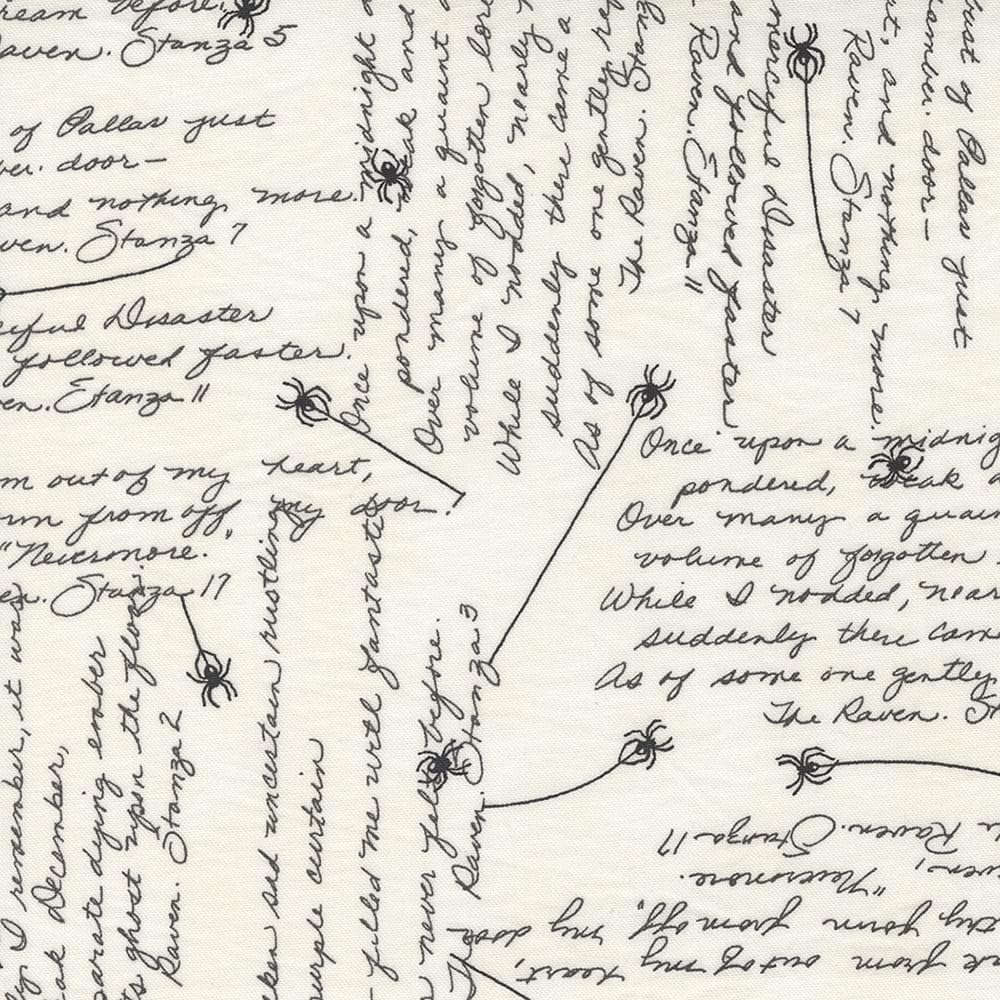 ream before.
aven. Stanza 5
of Pallas just
door—
and nothing more.
ven. Stanza 7
Disaster
followed faster.
en. Stanza 11
m out of my heart,
from off my door!"
"Nevermore."
en. Stanza 17
Once upon a midnight
pondered, weak and
Over many a quaint
volume of forgotten lore
While I nodded, nearly
suddenly there came a
As of some one gently
The Raven. Stanza
merciful Disaster
and followed faster
Raven. Stanza 11
just of Pallas just
door—
and nothing more.
Raven. Stanza 7
Once upon a midnig
pondered, weak a
Over many a quain
volume of forgotten
While I nodded, near
suddenly there came
As of some one gently
The Raven. St
I remember, it was
December,
parate dying ember
ts ghost upon the floor.
Raven. Stanza 2
ken sad uncertain rustling
urple curtain
filled me with fantasti
never felt before.
The Raven. Stanza 3
from out of my heart,
thy form from off my door
"Nevermore.
Raven. Stanza 17